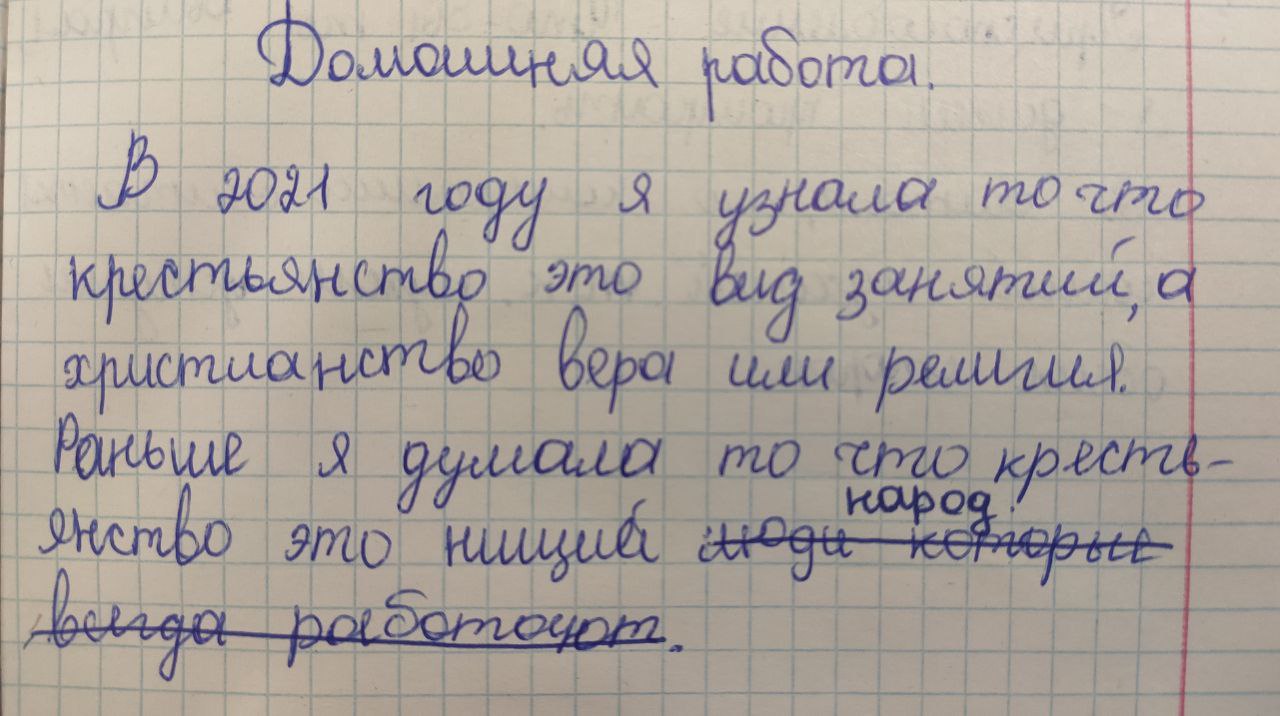 Домашняя работа.
В 2021 году я узнала то что
крестьянство это вид занятий, а
христианство вера или религия.
Раньше я думала то что кресть-
народ.
янство это нищий люди которые
всегда работают.